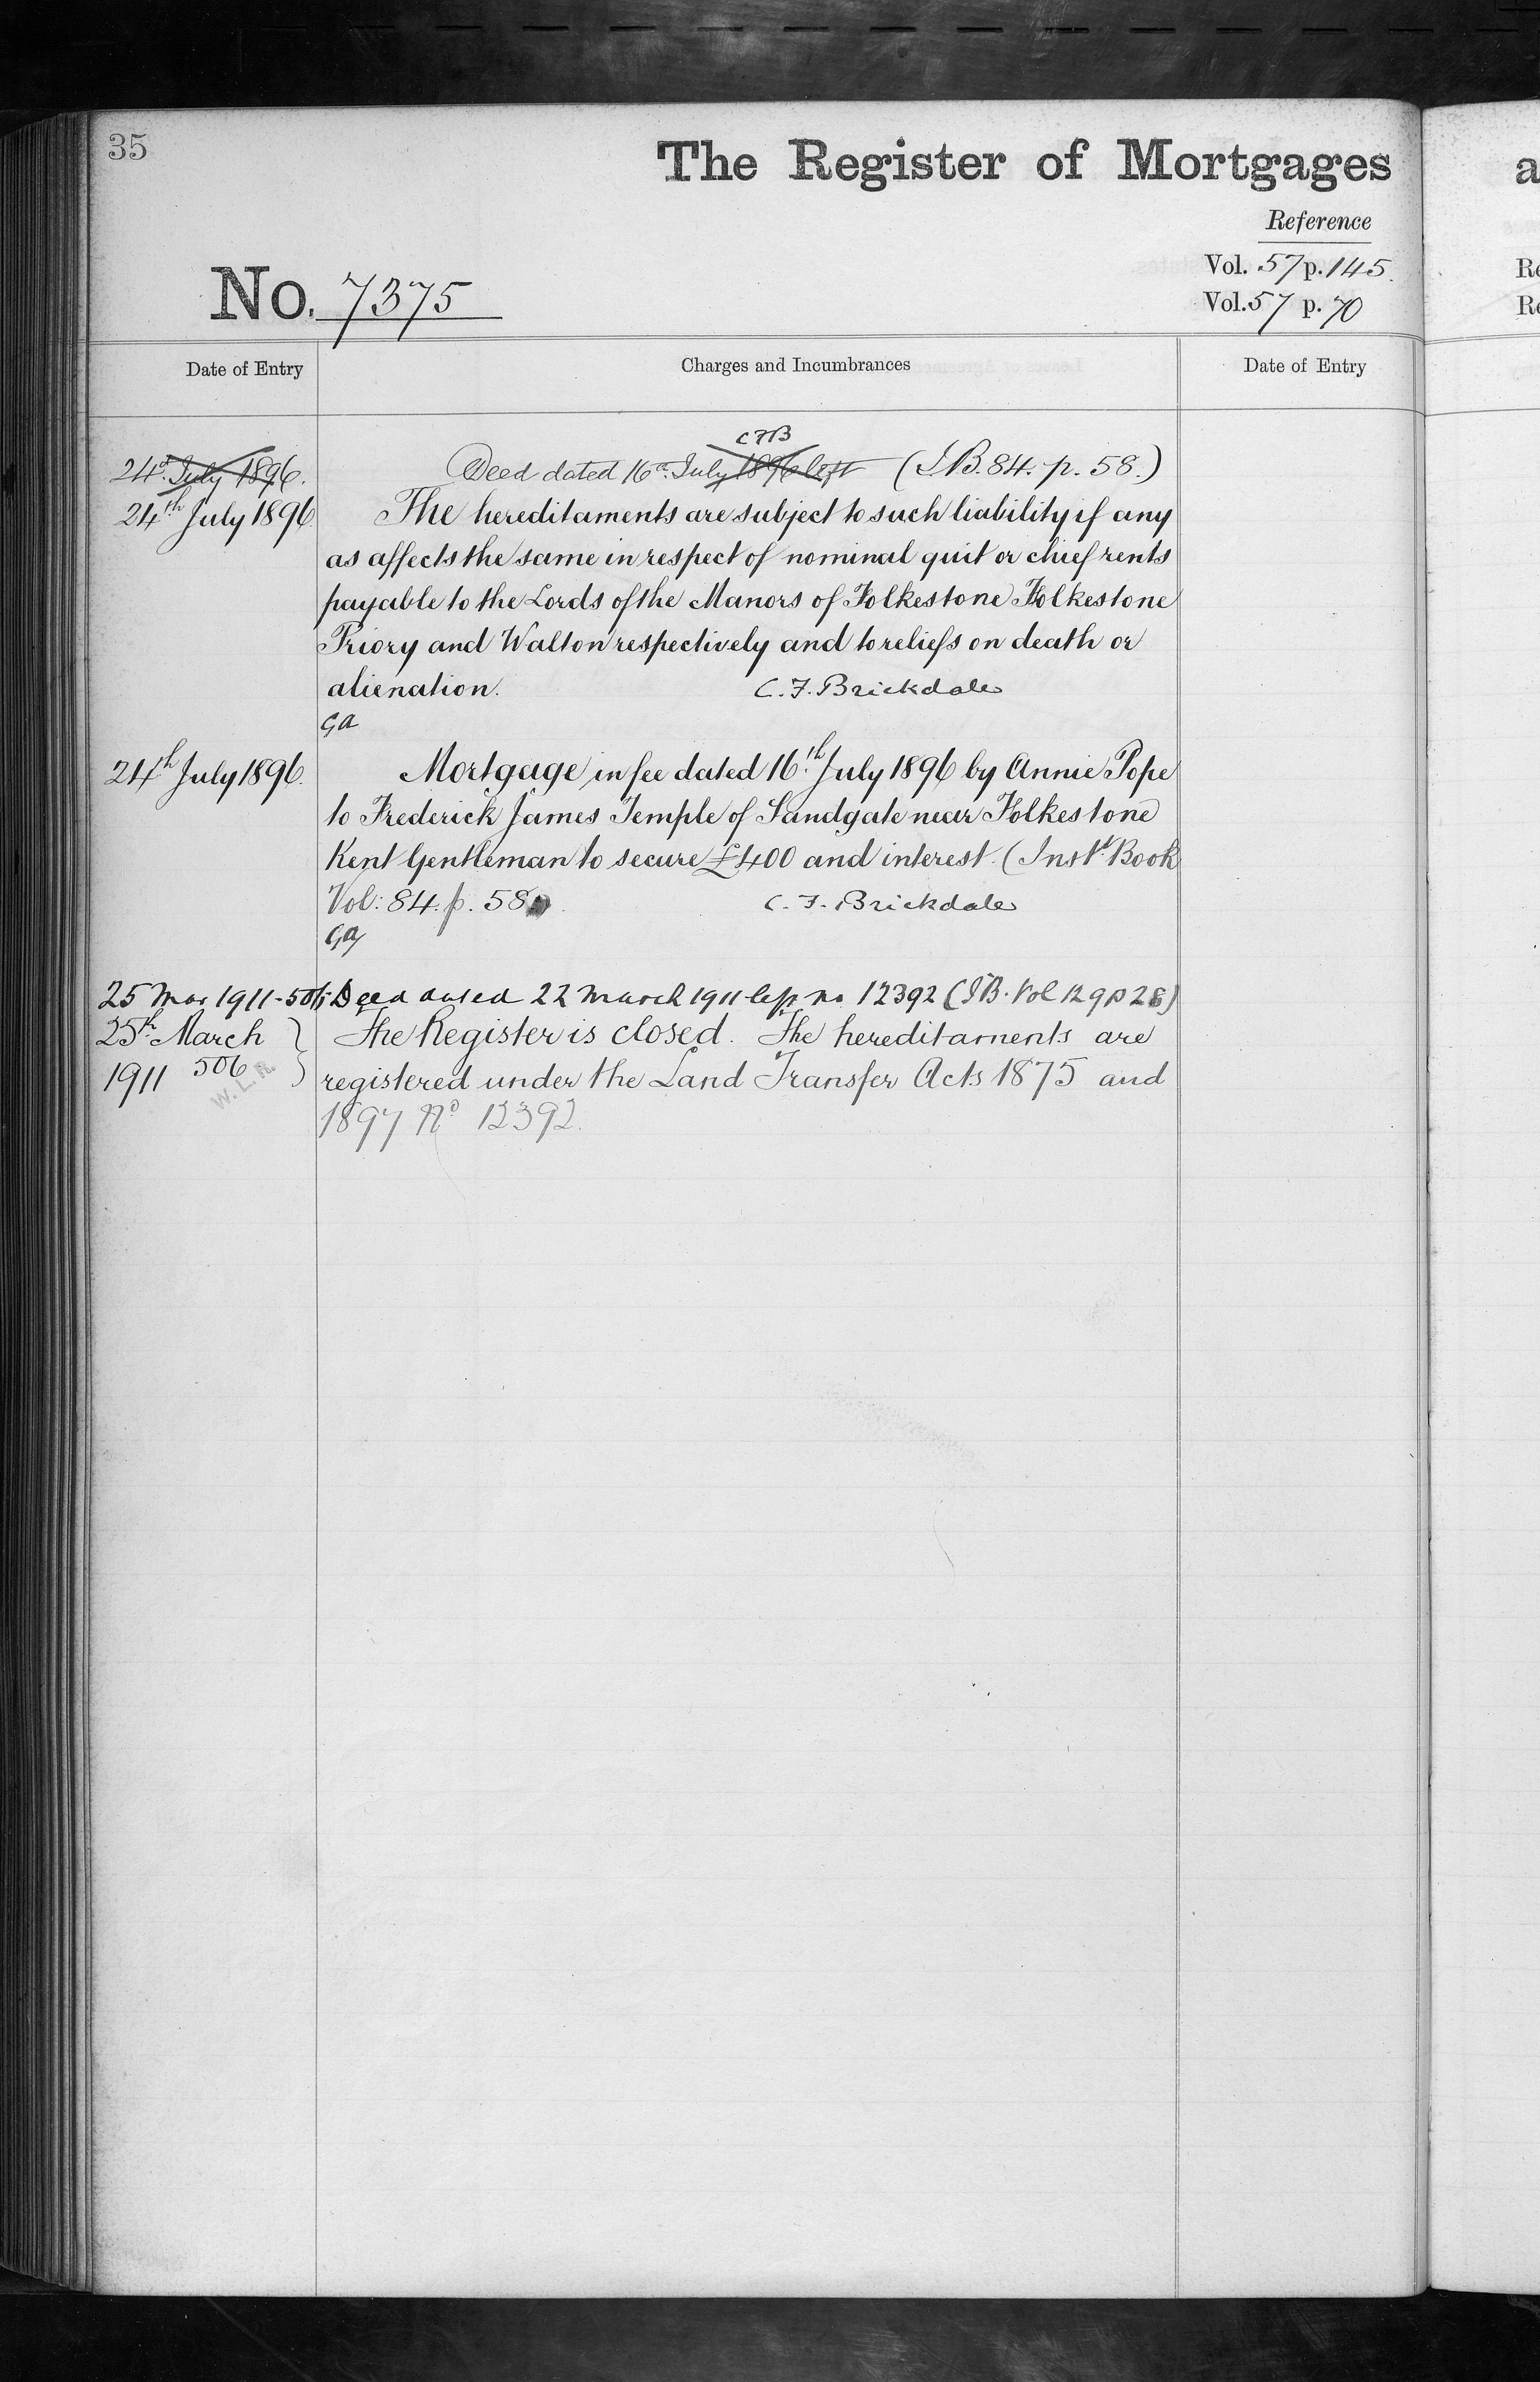 35
The Register of Mortgages
Reference
Vol. 57 p. 145.
Vol. 57 p. 70
No. 7375
Date of Entry
Charges and Incumbrances
Date of Entry
CFB
24th July 1896.
Deed dated 16th July 1896 left (I.B. 84. p. 58.)
24th July 1896
The hereditaments are subject to such liability if any
as affects the same in respect of nominal quit or chief rents
payable to the Lords of the Manors of Folkestone Folkestone
Priory and Walton respectively and to reliefs on death or
alienation. C. F. Brickdale
GA
24th July 1896.
Mortgage in fee dated 16th July 1896 by Annie Pope
to Frederick James Temple of Sandgate near Folkestone
Kent Gentleman to secure £400 and interest. (Instt. Book
Vol: 84. p. 58 C. F. Brickdale
GA
25 Mar 1911 - 506
Deed dated 22 March 1911 left no 12392 (I.B. Vol 129 p 28)
25th March
1911 506
W.L.R.
The Register is closed. The hereditaments are
registered under the Land Transfer Acts 1875 and
1897 No 12392.
a
Re
Re